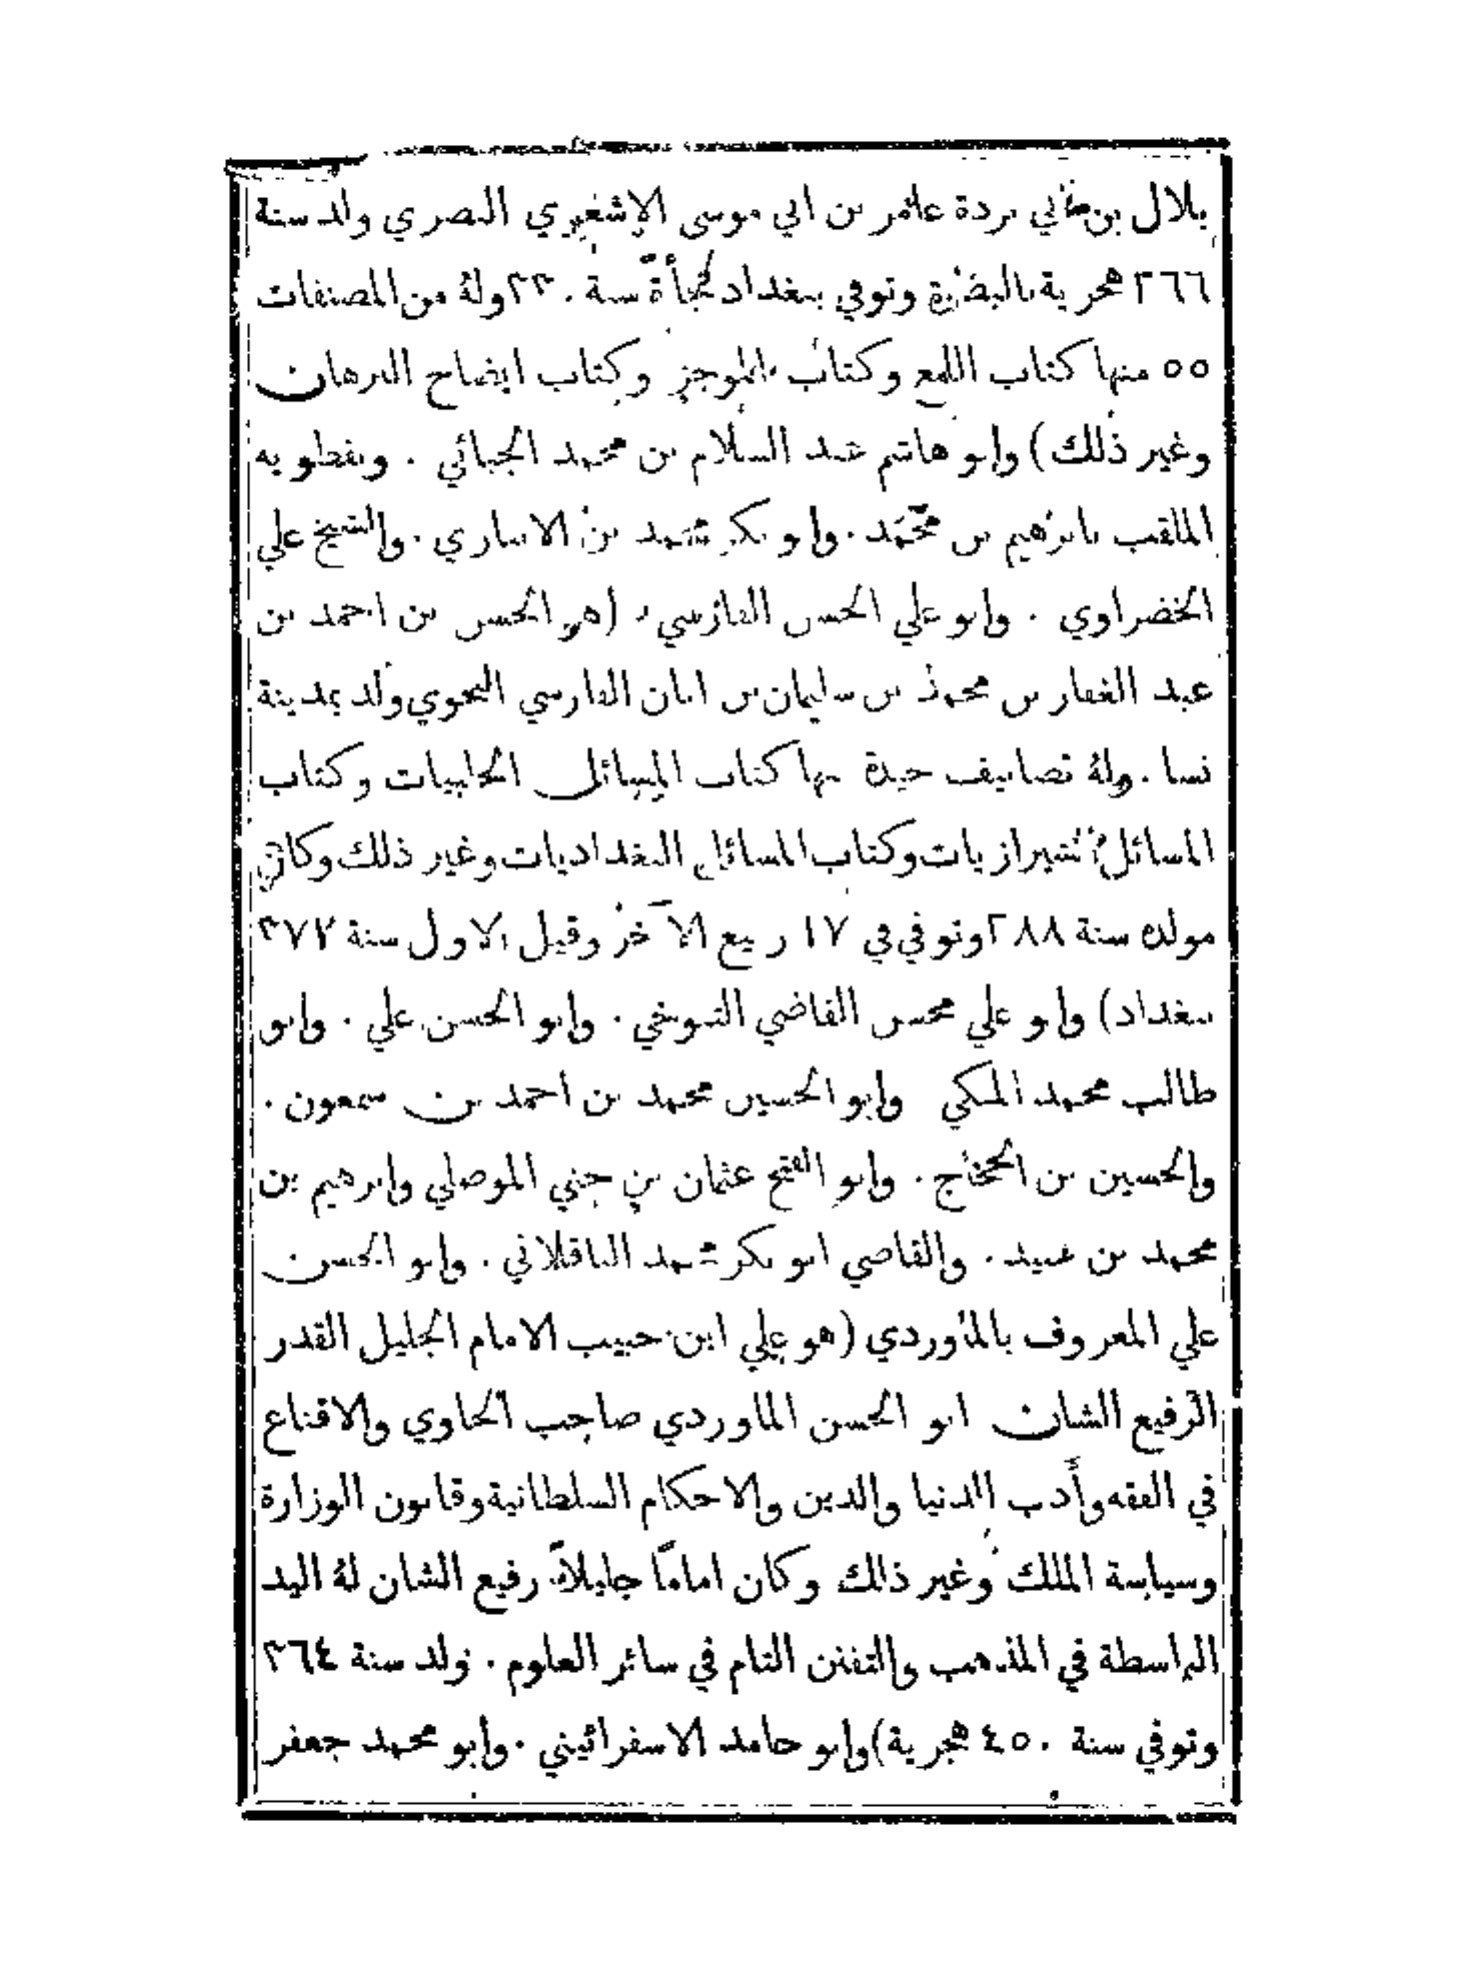 بلال بن ابي بردة عامر بن ابي موسى الاشعري البصري ولد سنة
٢٦٦ هجرية بالبصرة وتوفي ببغداد فجأةً سنة ٣٣٠ ولهُ من المصنفات
٥٥ منها كتاب اللمع وكتاب الموجز وكتاب ايضاح البرهان
وغير ذلك) وابو هاشم عبد السلام بن محمد الجبائي . ونفطويه
الملقب بابرهيم بن محمد . وابو بكر محمد بن الانباري . والشيخ علي
الخضراوي . وابو علي الحسن الفارسي . (هو الحسن بن احمد بن
عبد الغفار بن محمد بن سليمان بن ابان الفارسي النحوي ولد بمدينة
نسا . ولهُ تصانيف جيدة منها كتاب المسائل الحلبيات وكتاب
المسائل الشيرازيات وكتاب المسائل البغداديات وغير ذلك وكان
مولده سنة ٢٨٨ وتوفي في ١٧ ربيع الآخر وقيل الاول سنة ٣٧٧
ببغداد) وابو علي محسن القاضي التنوخي . وابو الحسن علي . وابو
طالب محمد المكي وابو الحسين محمد بن احمد بن سمعون .
والحسين بن الحجاج . وابو الفتح عثمان بن جني الموصلي وابرهيم بن
محمد بن عبيد . والقاضي ابو بكر محمد الباقلاني . وابو الحسن
علي المعروف بالماوردي (هو علي ابن حبيب الامام الجليل القدر
الرفيع الشان ابو الحسن الماوردي صاحب الحاوي والاقناع
في الفقه وأدب الدنيا والدين والاحكام السلطانية وقانون الوزارة
وسياسة الملك وغير ذلك وكان امامًا جليلاً رفيع الشان لهُ اليد
الباسطة في المذهب والتفنن التام في سائر العلوم . ولد سنة ٣٦٤
وتوفي سنة ٤٥٠ هجرية) وابو حامد الاسفرائيني . وأبو محمد جعفر